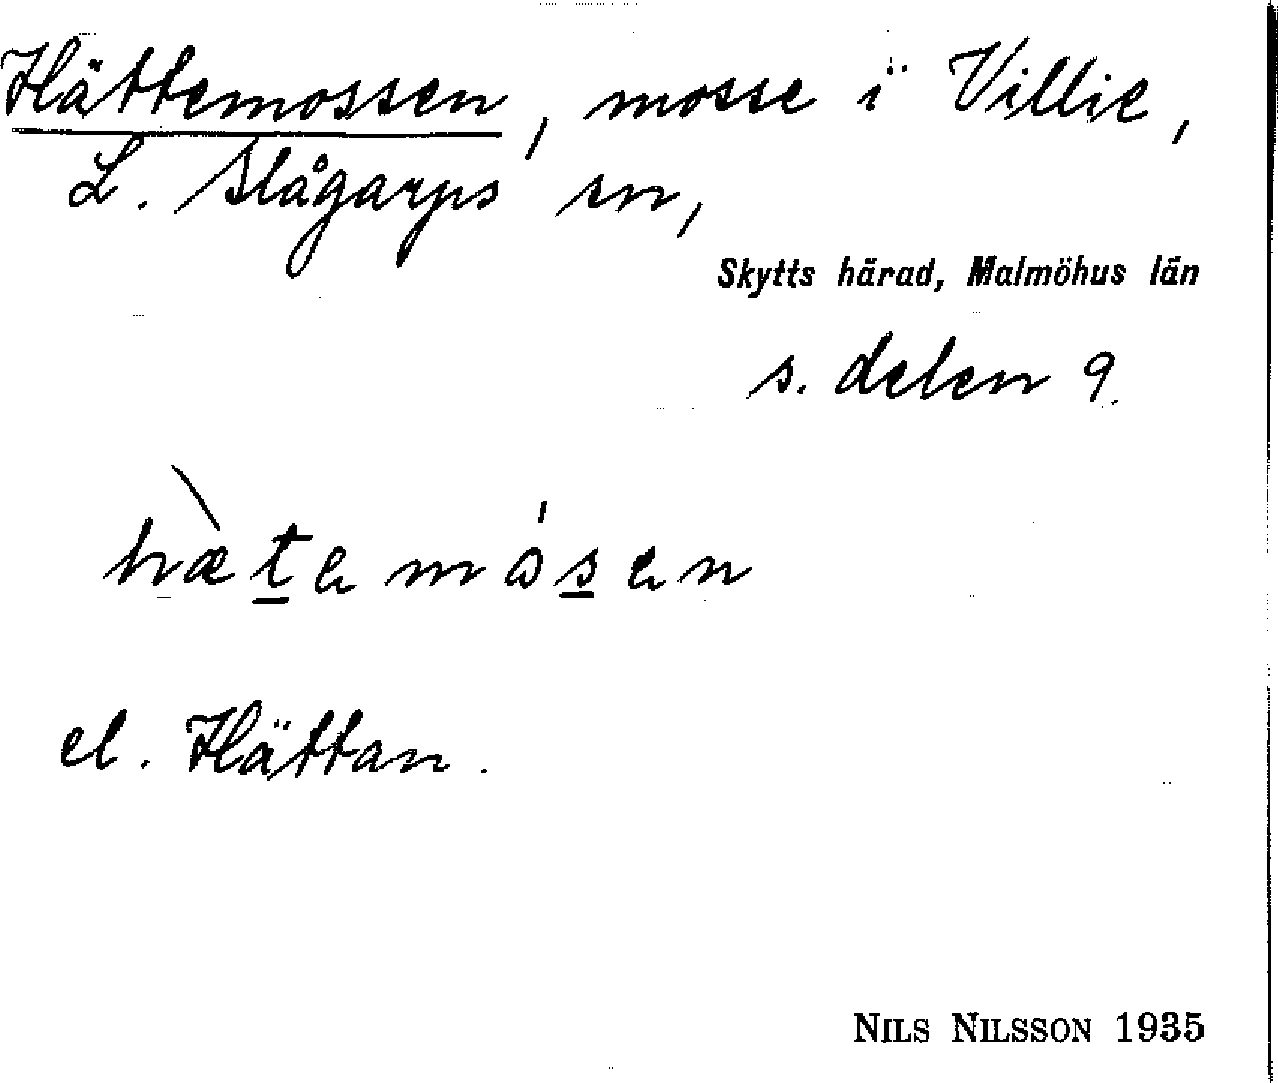 Hättemossen, mosse i Villie,
L. Slågarps sn,
Skytts härad, Malmöhus län
s. delen 9.
hæ̀tamósan
el. Hättan.
NILS NILSSON 1935